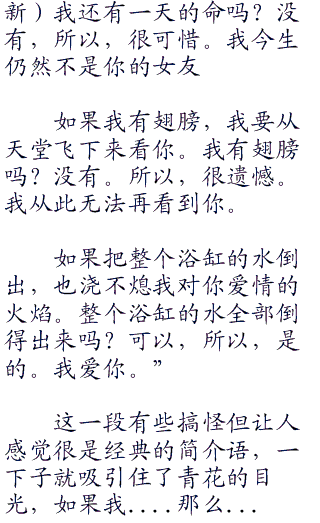 新）我还有一天的命吗？没
有，所以，很可惜。我今生
仍然不是你的女友
如果我有翅膀，我要从
天堂飞下来看你。我有翅膀
吗？没有。所以，很遗憾。
我从此无法再看到你。
如果把整个浴缸的水倒
出，也浇不熄我对你爱情的
火焰。整个浴缸的水全部倒
得出来吗？可以，所以，是
的。我爱你。”
这一段有些搞怪但让人
感觉很是经典的简介语，一
下子就吸引住了青花的目
光，如果我....那么...